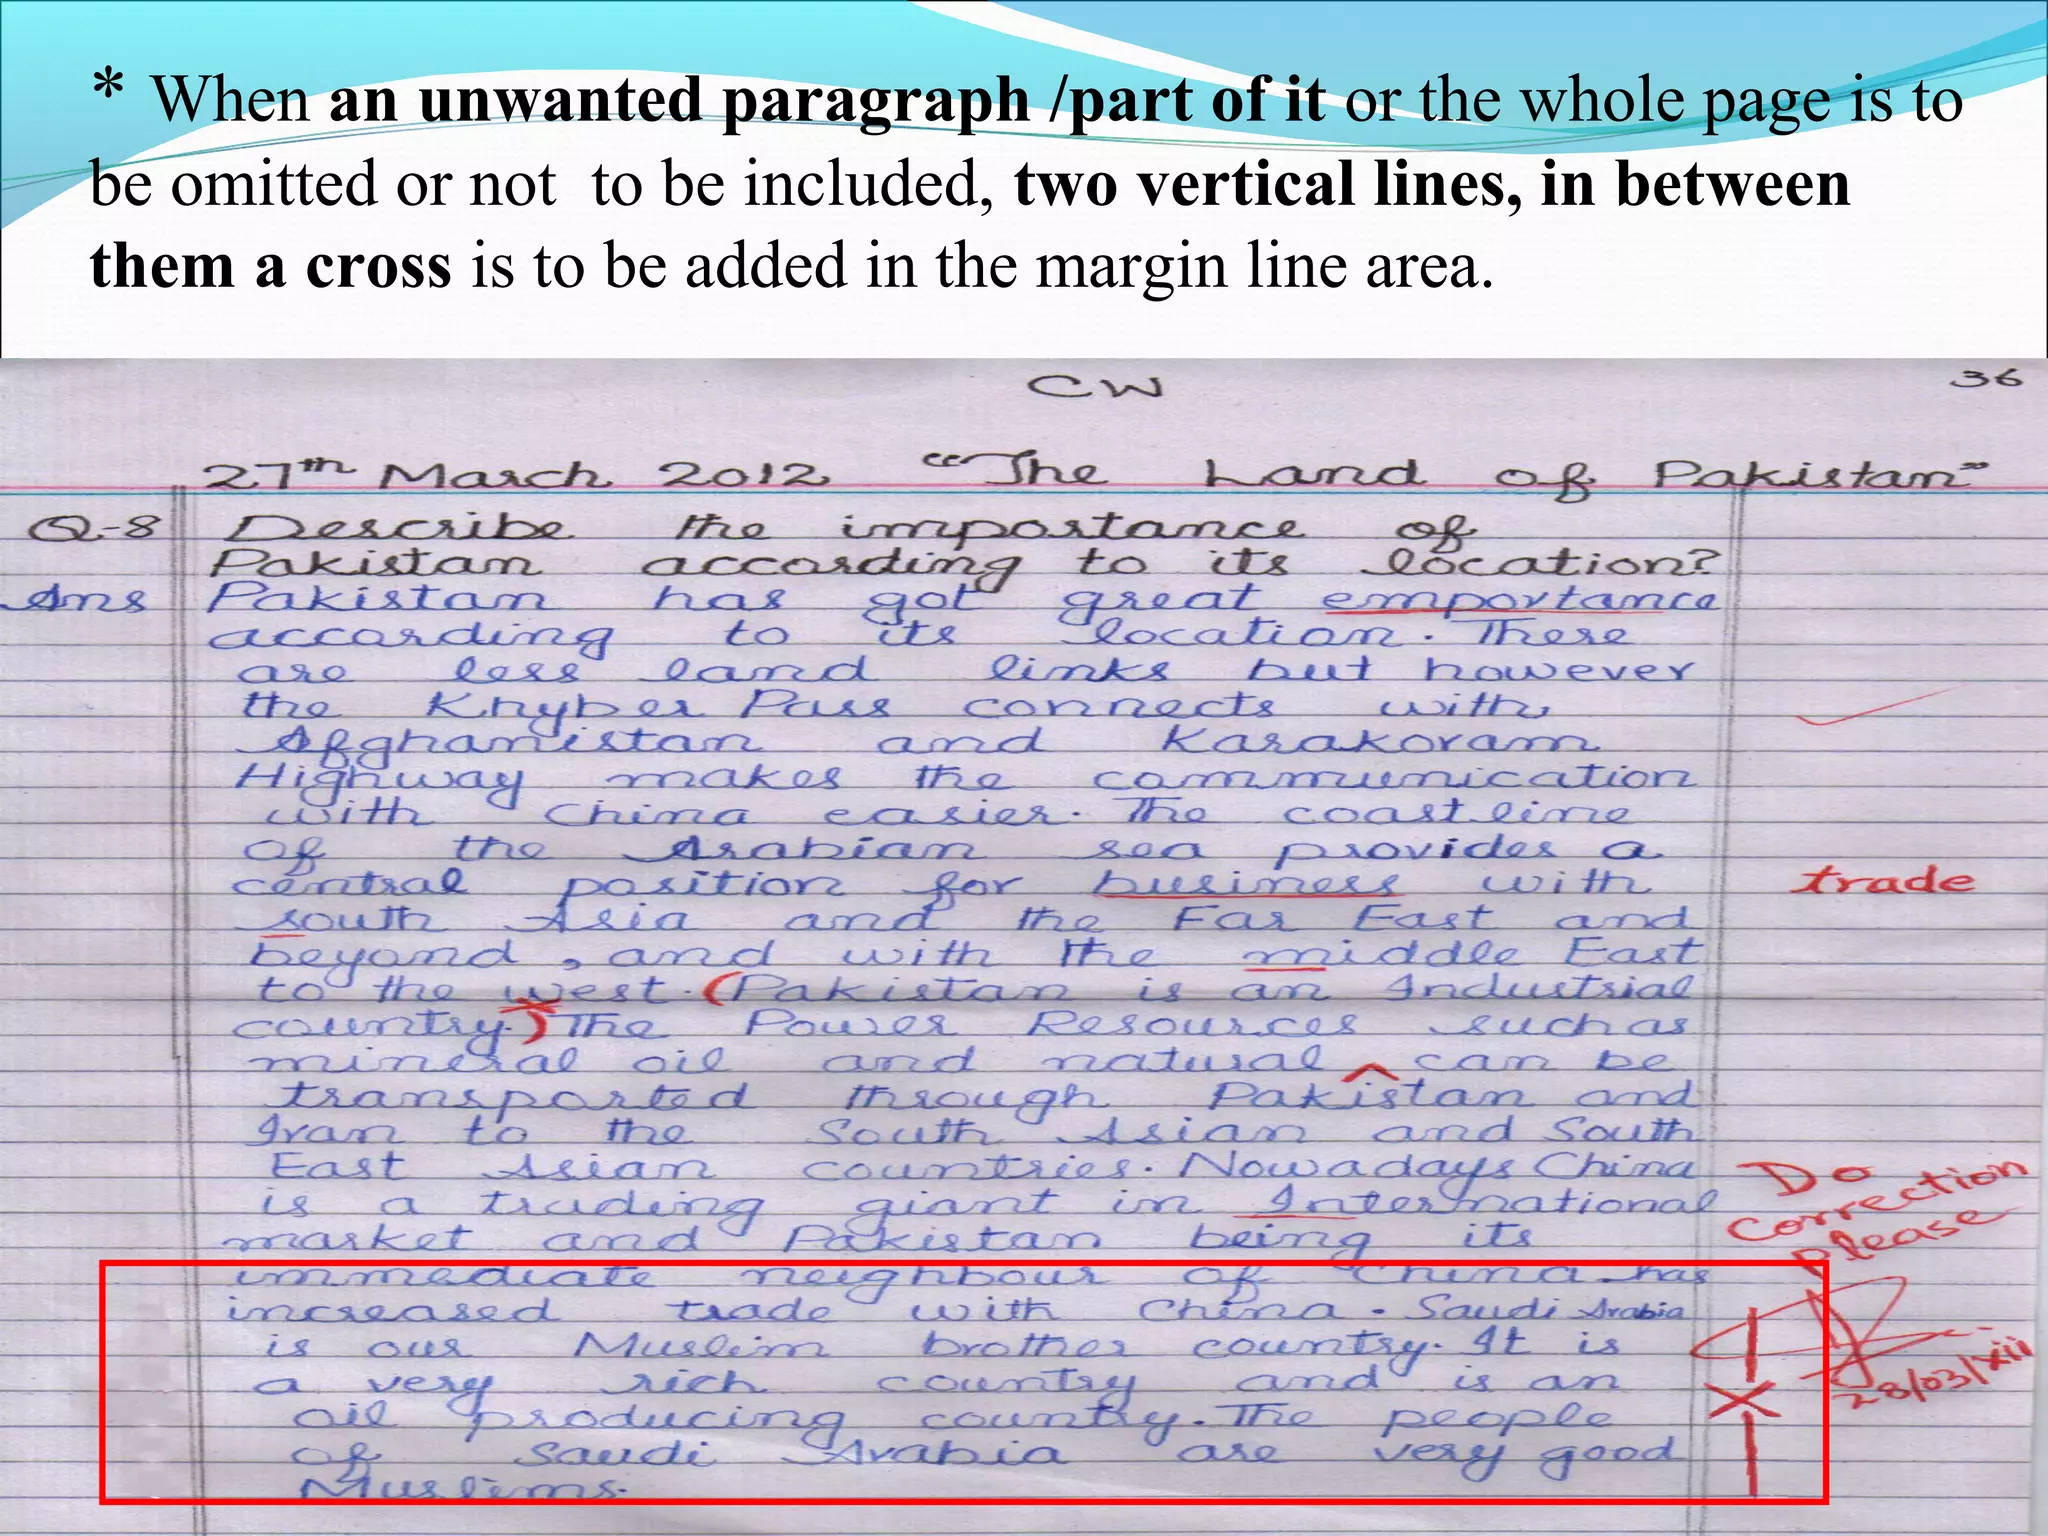 * When an unwanted paragraph /part of it or the whole page is to
be omitted or not to be included, two vertical lines, in between
them a cross is to be added in the margin line area.
CW
36
27th March 2012 "The Land of Pakistan"
Q-8 Describe the importance of
Pakistan according to its location?
Ans Pakistan has got great emportance
according to its location. There
are less land links but however
the Khyber Pass connects with
Afghanistan and Karakoram
Highway makes the communication
with China easier. The coastline
of the Arabian sea provides a
central position for business with trade
south Asia and the Far East and
beyond, and with the middle East
to the west. (Pakistan is an Industrial
country.) The Power Resources such as
mineral oil and natural ^ can be
transported through Pakistan and
Iran to the South Asian and South
East Asian countries. Nowadays China
is a trading giant in International
market and Pakistan being its
immediate neighbour of China has
increased trade with China. Saudi Arabia
is our Muslim brother country. It is
a very rich country and is an
oil producing country. The people
of Saudi Arabia are very good
Muslims.
Do
correction
please
28/03/xii